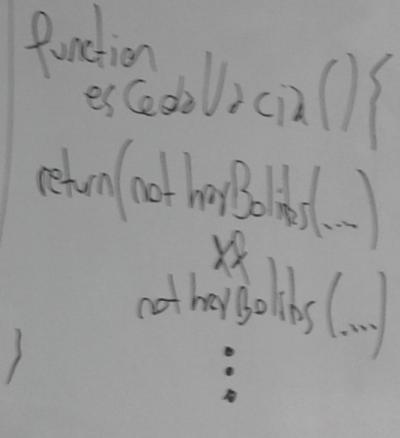 function
esCeldaVacia(){
return(not hayBolitas(...)
&&
not hayBolitas(....)
⋮
}